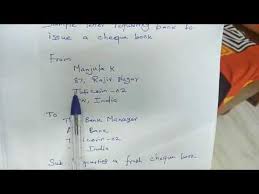 Sample letter requesting bank to
issue a cheque book
From
Manjula K
87, Rajiv Nagar
Tuticorin-02
India
To
The Bank Manager
Bank
Tuticorin-02
India
Sub: a fresh cheque book